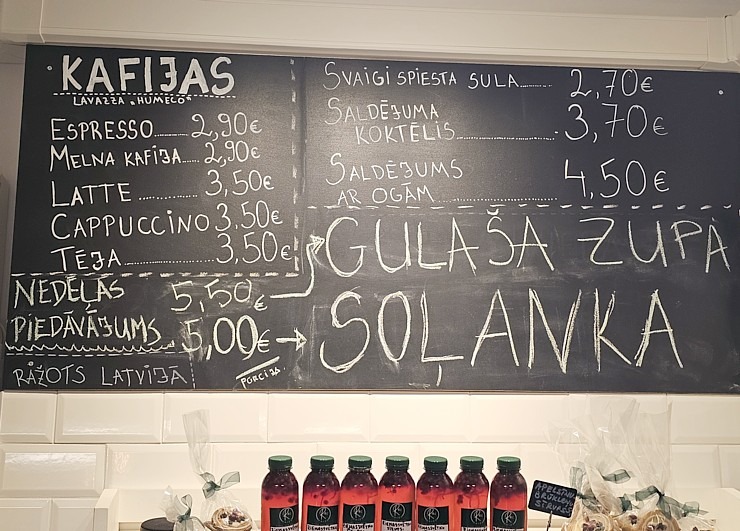 KAFIJAS
LAVAZZA "HUMECO"
ESPRESSO......2,90€
MELNA KAFIJA...2,90€
LATTE.........3,50€
CAPPUCCINO 3,50€
TĒJA..........3,50€
SVAIGI SPIESTA SULA......2,70€
SALDĒJUMA
KOKTĒLIS......3,70€
SALDĒJUMS
AR OGĀM......4,50€
NEDĒĻAS
PIEDĀVĀJUMS
5,50€ → GULAŠA ZUPA
5,00€ → SOĻANKA
PORCIJA
RAŽOTS LATVIJĀ